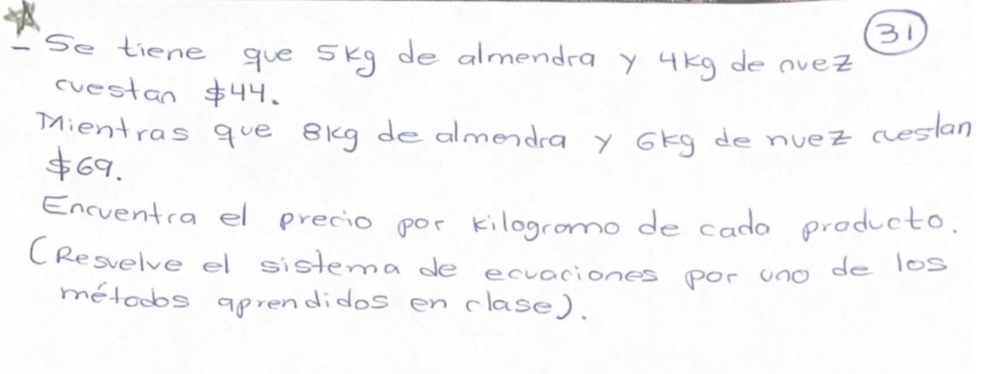 31
- Se tiene que 5kg de almendra y 4kg de nuez
cuestan $44.
Mientras que 8kg de almendra y 6kg de nuez cuestan
$69.
Encuentra el precio por kilogramo de cada producto.
(Resuelve el sistema de ecuaciones por uno de los
métodos aprendidos en clase).